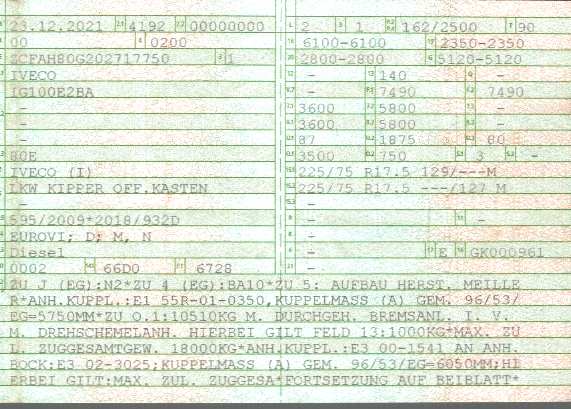 23.12.2021 4192 00000000 2 1 162/2500 90
00 0200 6100-6100 2350-2350
ZCFAH80G202717750 1 2800-2800 5120-5120
IVECO - 140 -
IG100E2BA - 7490 7490
- 3600 5800 -
- 3600 5800 -
- 87 1875 80
80E 3500 750 3 -
IVECO (I) 225/75 R17.5 129/---M
LKW KIPPER OFF.KASTEN 225/75 R17.5 ---/127 M
- -
595/2009*2018/932D - -
EUROVI; D; M, N -
Diesel - E GK000961
0002 66D0 6728 -
ZU J (EG):N2*ZU 4 (EG):BA10*ZU 5: AUFBAU HERST. MEILLE
R*ANH.KUPPL.:E1 55R-01-0350,KUPPELMASS (A) GEM. 96/53/
EG=5750MM*ZU O.1:10510KG M. DURCHGEH. BREMSANL. I. V.
M. DREHSCHEMELANH. HIERBEI GILT FELD 13:1000KG*MAX. ZU
L. ZUGGESAMTGEW. 18000KG*ANH.KUPPL.:E3 00-1541 AN ANH.
BOCK:E3 02-3025;KUPPELMASS (A) GEM. 96/53/EG=6050MM;HI
ERBEI GILT:MAX. ZUL. ZUGGESA*FORTSETZUNG AUF BEIBLATT*